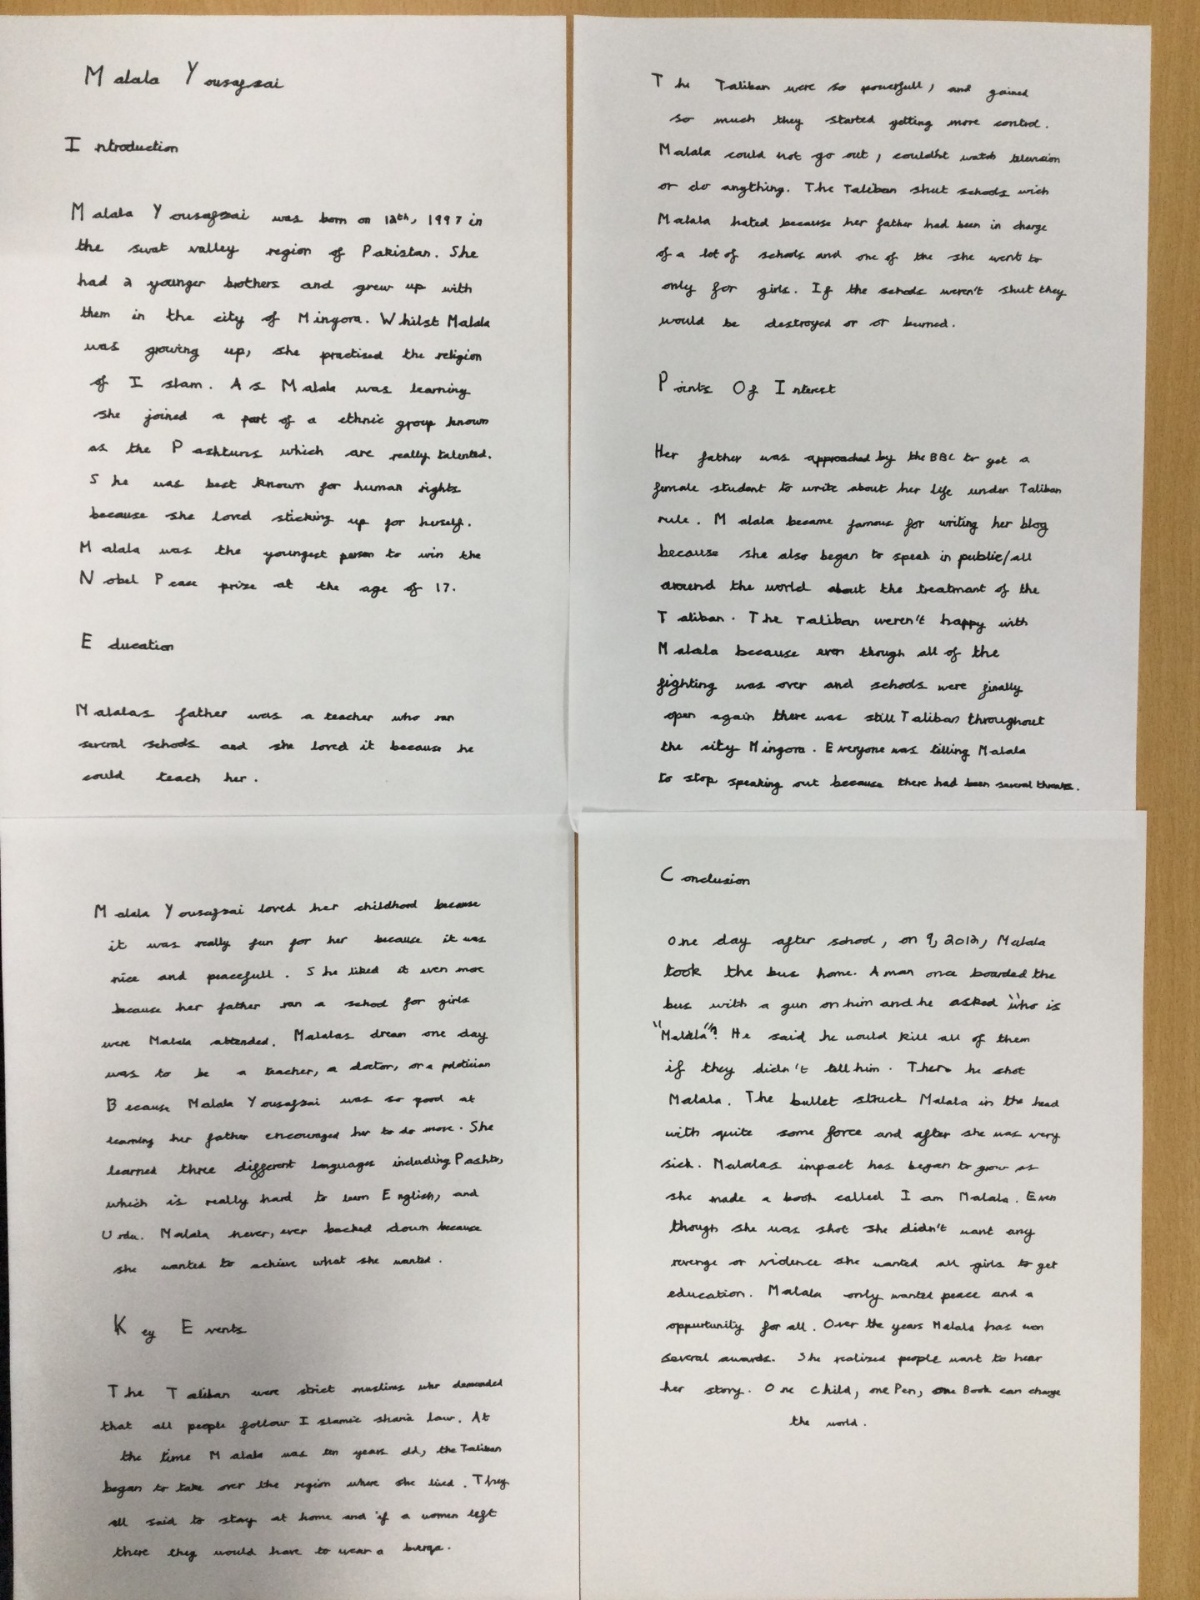 Malala Yousafzai
Introduction
Malala Yousafzai was born on 12th, 1997 in
the swat valley region of Pakistan. She
had 2 younger brothers and grew up with
them in the city of Mingora. Whilst Malala
was growing up, she practised the religion
of Islam. As Malala was learning
she joined a part of a ethnic group known
as the Pashtuns which are really talented.
She was best known for human rights
because she loved sticking up for herself.
Malala was the youngest person to win the
Nobel Peace prize at the age of 17.
Education
Malalas father was a teacher who ran
several schools and she loved it because he
could teach her.
Malala Yousafzai loved her childhood because
it was really fun for her because it was
nice and peacefull. She liked it even more
because her father ran a school for girls
were Malala attended. Malalas dream one day
was to be a teacher, a doctor, or a politician
Because Malala Yousafzai was so good at
learning her father encouraged her to do more. She
learned three different languages including Pashto,
which is really hard to learn English, and
Urdu. Malala never, ever backed down because
she wanted to achieve what she wanted.
Key Events
The Taliban were strict muslims who demanded
that all people follow Islamic sharia law. At
the time Malala was ten years old, the Taliban
began to take over the region where she lived. They
all said to stay at home and if a women left
there they would have to wear a burqa.
The Taliban were so powerfull, and gained
so much they started getting more control.
Malala could not go out, couldn't watch television
or do anything. The Taliban shut schools wich
Malala hated because her father had been in charge
of a lot of schools and one of the she went to
only for girls. If the schools weren't shut they
would be destroyed or or burned.
Points Of Interest
Her father was approached by the BBC to get a
female student to write about her life under Taliban
rule. Malala became famous for writing her blog
because she also began to speak in public/all
around the world about the treatmant of the
Taliban. The Taliban weren't happy with
Malala because even though all of the
fighting was over and schools were finally
open again there was still Taliban throughout
the city Mingora. Everyone was telling Malala
to stop speaking out because there had been several threats.
Conclusion
One day after school, on 9, 2012, Malala
took the bus home. A man once boarded the
bus with a gun on him and he asked "who is
"Malala"? He said he would kill all of them
if they didn't tell him. Then he shot
Malala. The bullet struck Malala in the head
with quite some force and after she was very
sick. Malalas impact has began to grow as
she made a book called I am Malala. Even
though she was shot she didn't want any
revenge or violence she wanted all girls to get
education. Malala only wanted peace and a
oppurtunity for all. Over the years Malala has won
several awards. She realized people want to hear
her story. One child, one Pen, one Book can change
the world.